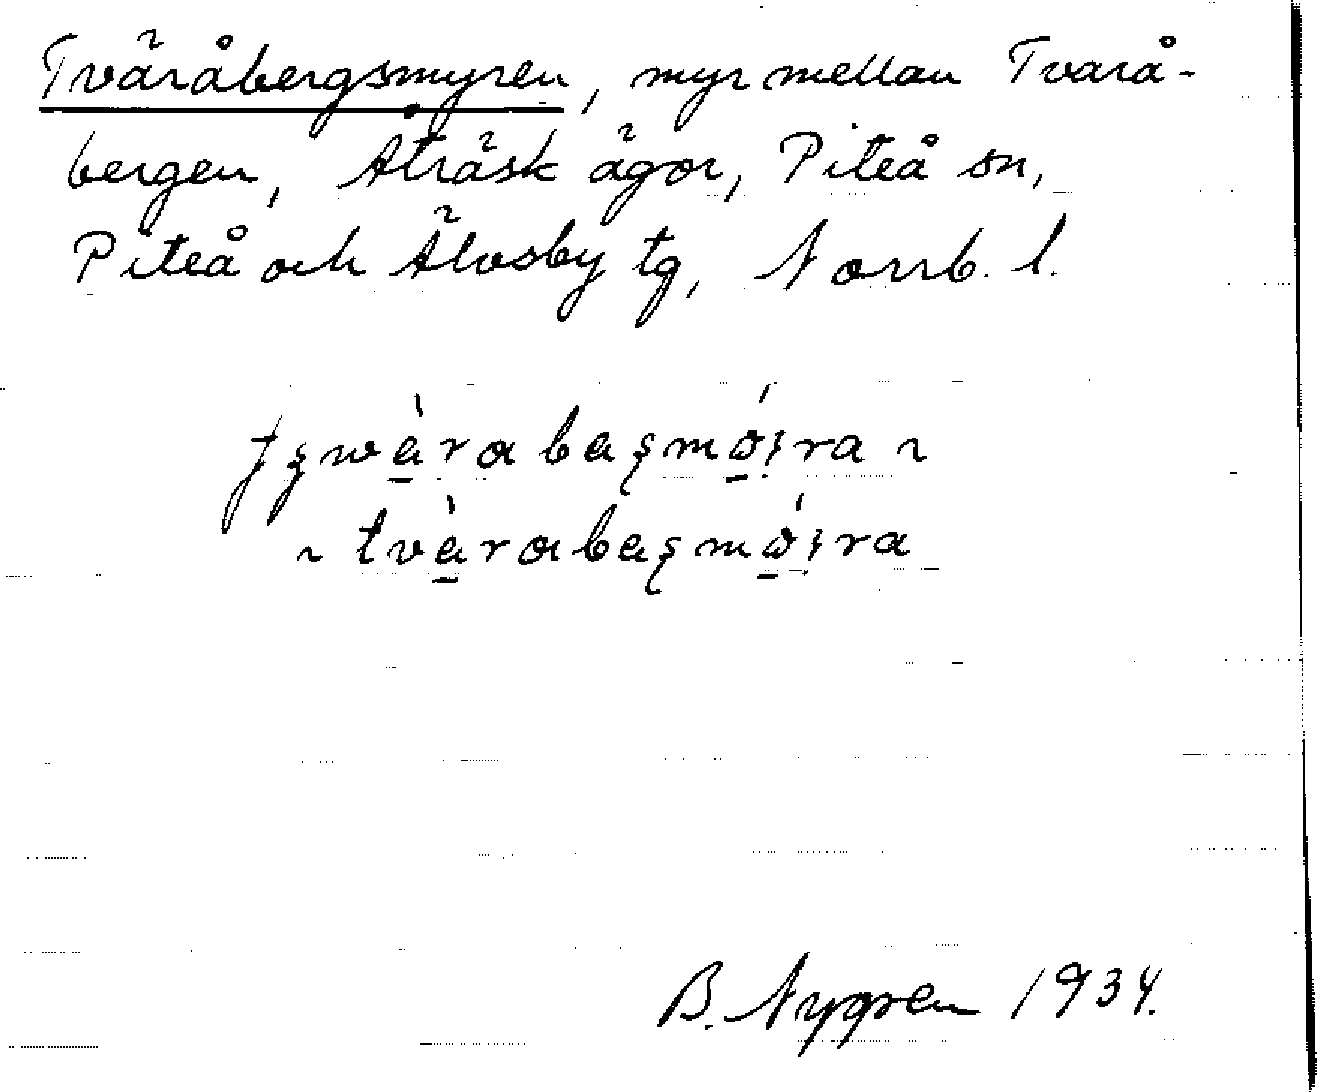 Tväråbergsmyren, myr mellan Tvärå-
bergen, Åträsk ägor, Piteå sn,
Piteå och Älvsby tg, Norrb. l.
tvàrabaʂmǿira
B. Nygren 1934.